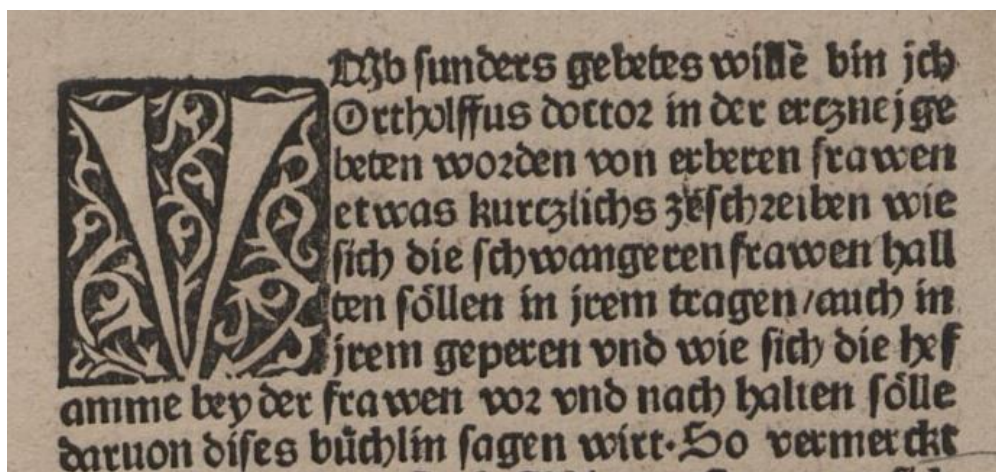 VMb sunders gebetes willē bin jch
Ortholffus doctor in der ercznej ge
beten worden von erberen frawen
etwas kurczlichs zeͤschreiben wie
sich die schwangeren frawen hall
ten soͤllen in jrem tragen/auch in
jrem geperen vnd wie sich die hef
amme bey der frawen vor vnd nach halten soͤlle
daruon dises buͤchlin sagen wirt·So vermerckt